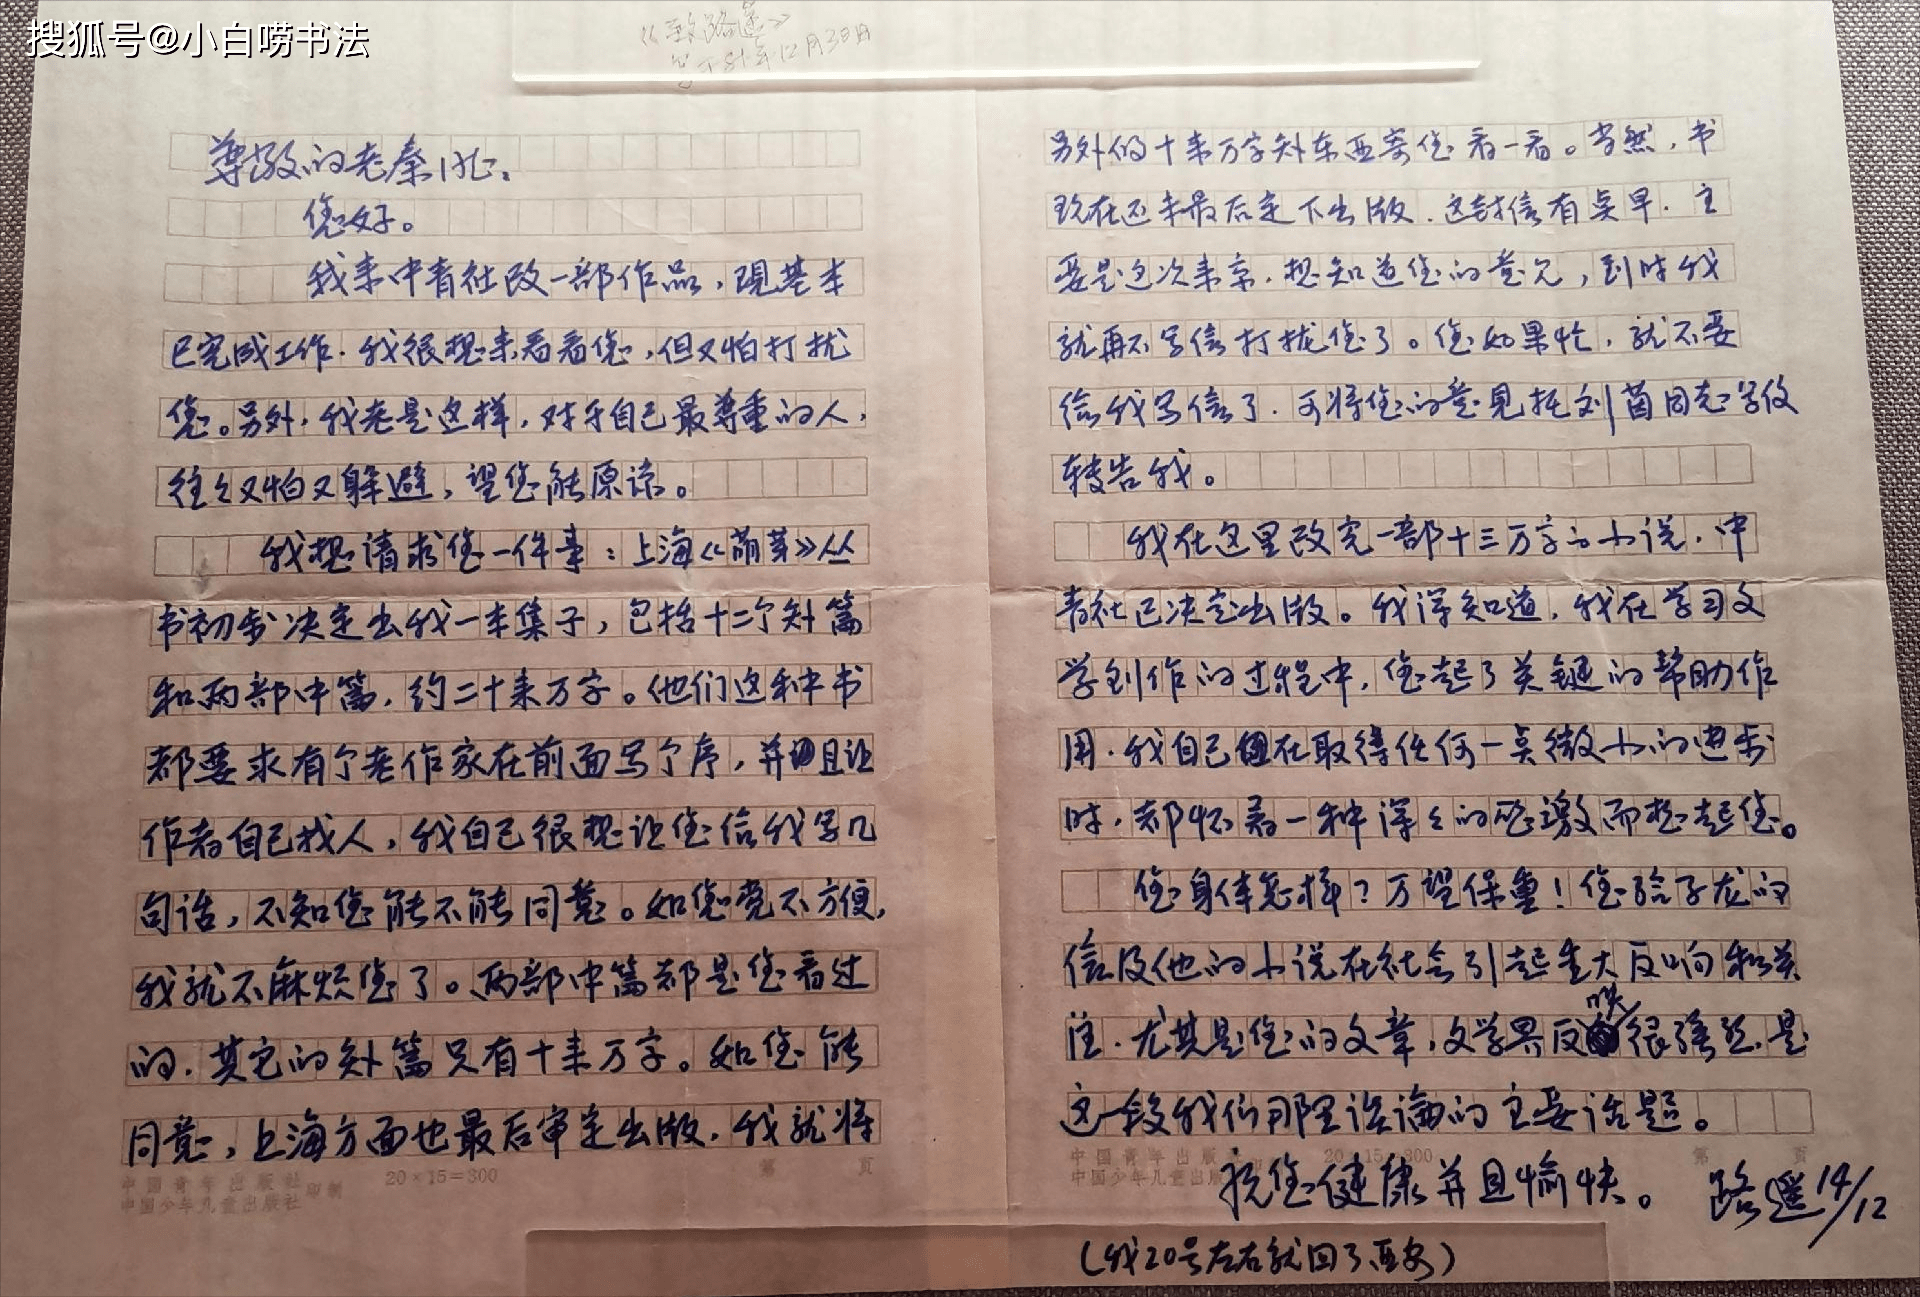 搜狐号@小白唠书法
《致路遥》
12月30日
尊敬的老秦同志：
您好。
我来中青社改一部作品，现基本
已完成工作。我很想来看看您，但又怕打扰
您。另外，我老是这样，对于自己最尊重的人，
往往又怕又躲避，望您能原谅。
我想请求您一件事：上海《萌芽》丛
书初步决定出我一本集子，包括十二个短篇
和两部中篇，约二十来万字。他们这种书
都要求有个老作家在前面写个序，并且让
作者自己找人，我自己很想让您给我写几
句话，不知您能不能同意。如您觉不方便，
我就不麻烦您了。两部中篇都是您看过
的，其它的短篇只有十来万字。如您能
同意，上海方面也最后审定出版，我就将
中国青年出版社
中国少年儿童出版社 印制
20×15=300
第 页
另外的十来万字短东西寄您看一看。当然，书
现在还未最后定下出版，这封信有点早，主
要是这次来京，想知道您的意见，到时我
就再不写信打扰您了。您如果忙，就不要
给我写信了，可将您的意见托刘茵同志写信
转告我。
我在这里改完一部十三万字的小说，中
青社已决定出版。我深知道，我在学习文
学创作的过程中，您起了关键的帮助作
用，我自己在取得任何一点微小的进步
时，都怀着一种深深的感激而想起您。
您身体怎样？万望保重！您给子龙的
信及他的小说在社会引起重大反响和关
注，尤其是您的文章，文学界反映很强烈，是
这一段我们那里谈论的主要话题。
中国青年出版社
中国少年儿童出版社
20×15=300
第 页
祝您健康并且愉快。
路遥 14/12
（我20号左右就回了西安）